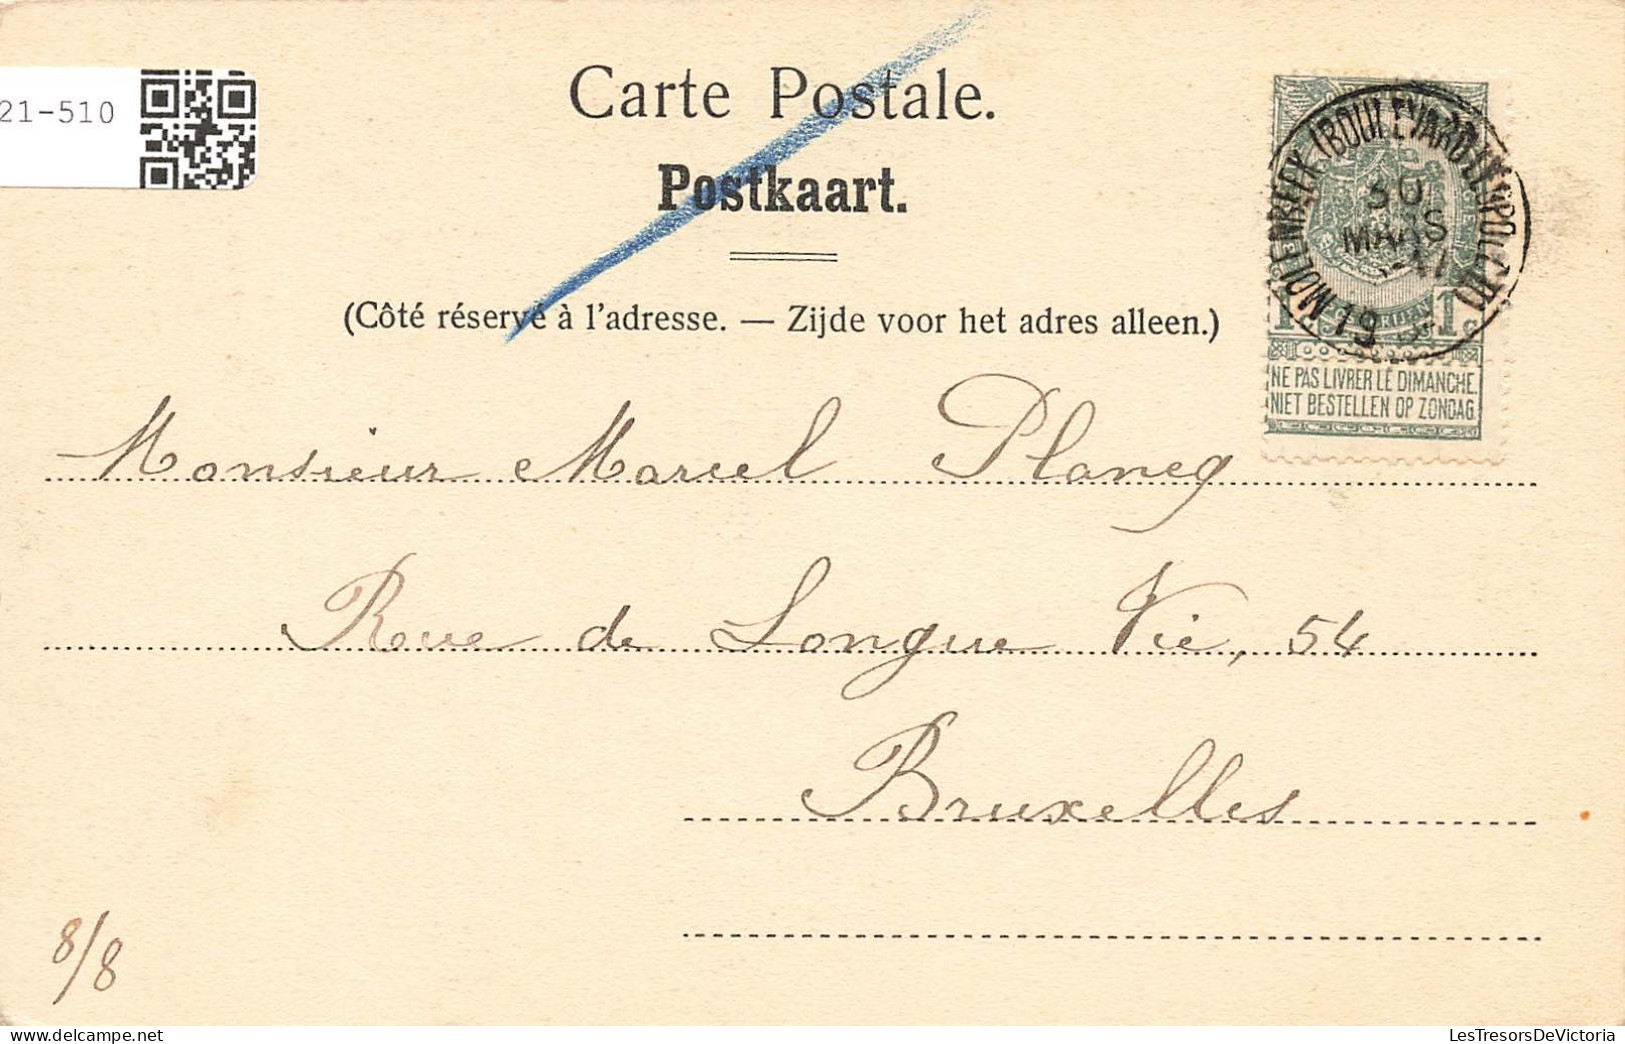 21-510
Carte Postale.
Postkaart.
(Côté réservé à l'adresse. — Zijde voor het adres alleen.)
MOLENBEEK (BOULEVARD LEOPOLD II)
30
MARS
19
1 1c
NE PAS LIVRER LE DIMANCHE.
NIET BESTELLEN OP ZONDAG
Monsieur Marcel Plancq
Rue de Longue Vie, 54
Bruxelles
8/8
LesTresorsDeVictoria